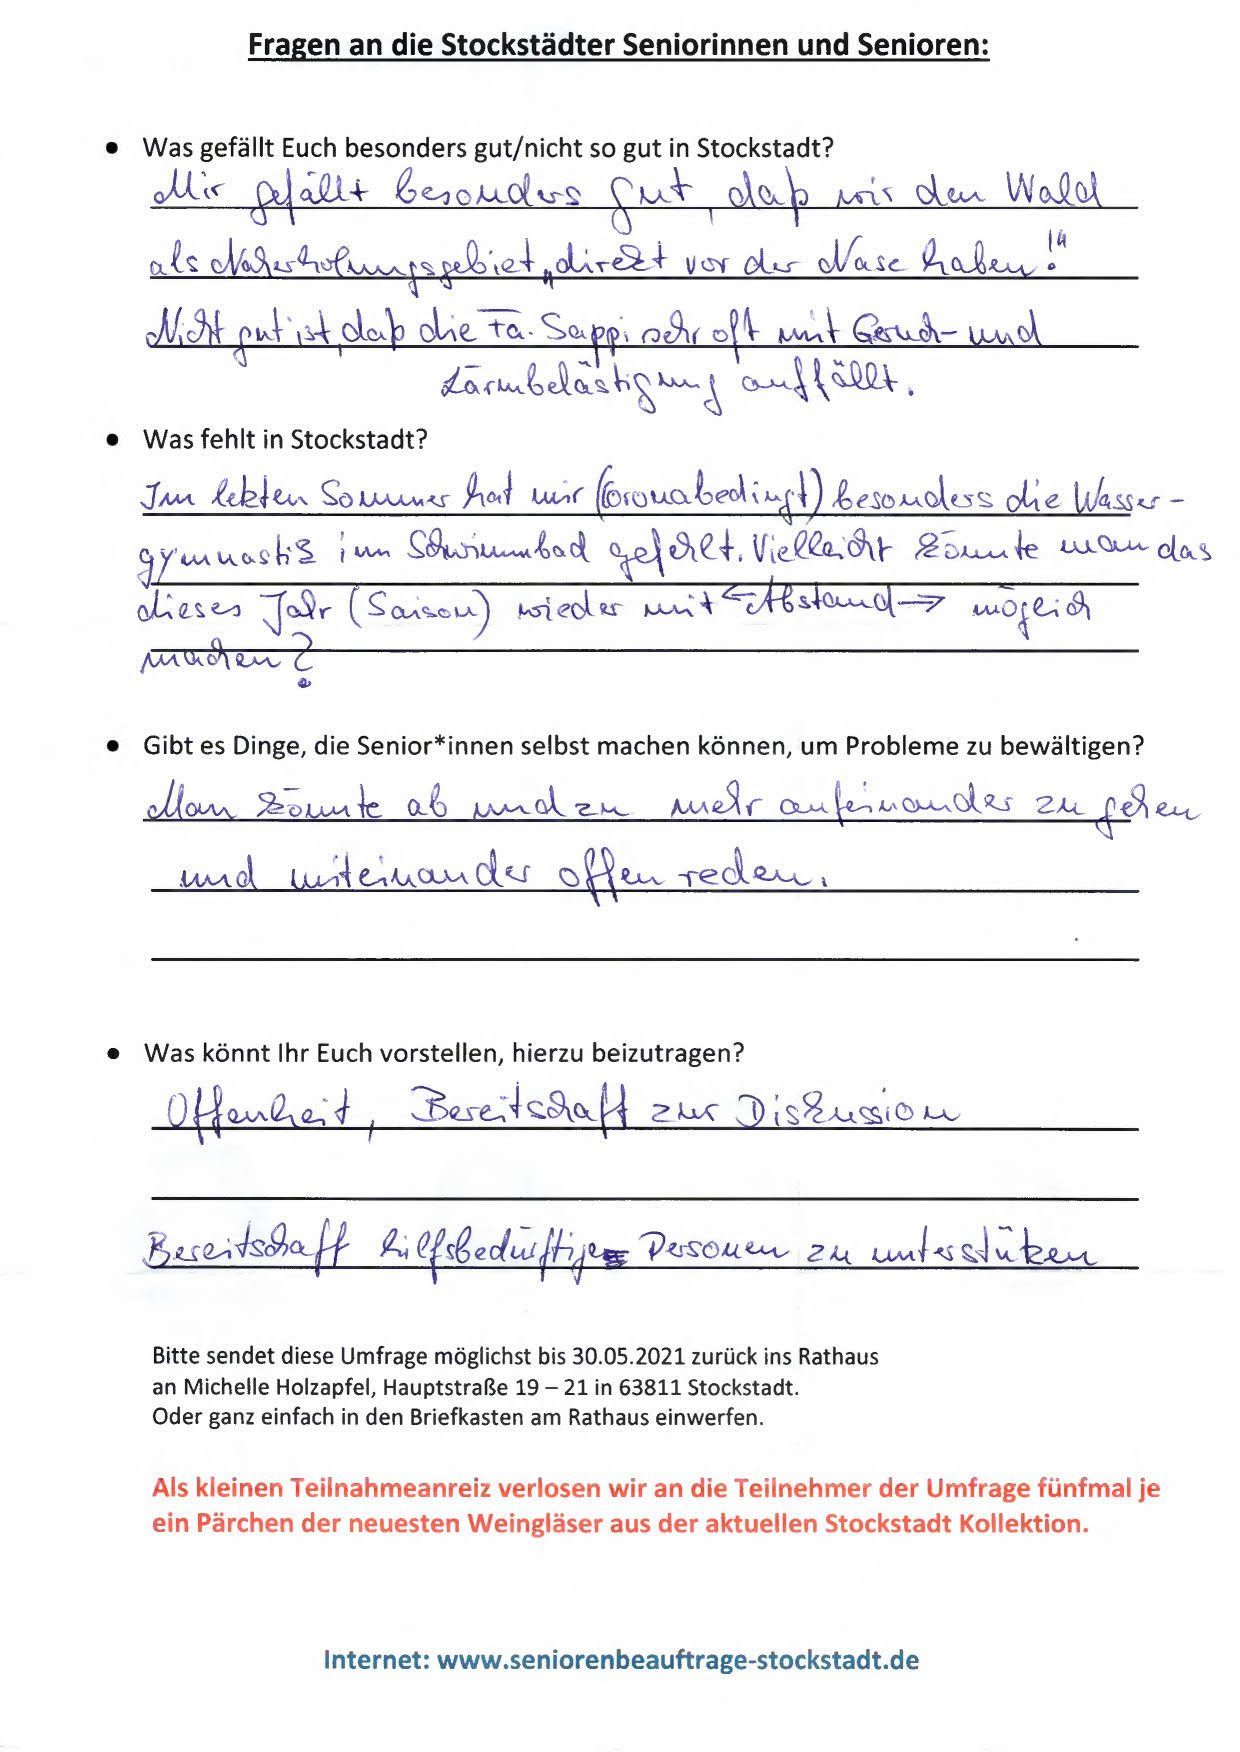 Fragen an die Stockstädter Seniorinnen und Senioren:
• Was gefällt Euch besonders gut/nicht so gut in Stockstadt?
Mir gefällt besonders gut, daß wir den Wald
als Naherholungsgebiet „direkt vor der Nase haben!“
Nicht gut ist, daß die Fa. Sappi sehr oft mit Geruch- und
Lärmbelästigung auffällt.
• Was fehlt in Stockstadt?
Im letzten Sommer hat mir (Coronabedingt) besonders die Wasser-
gymnastik im Schwimmbad gefehlt. Vielleicht könnte man das
dieses Jahr (Saison) wieder mit ← Abstand → möglich
machen?
• Gibt es Dinge, die Senior*innen selbst machen können, um Probleme zu bewältigen?
Man könnte ab und zu mehr aufeinander zu gehen
und miteinander offen reden.
• Was könnt Ihr Euch vorstellen, hierzu beizutragen?
Offenheit, Bereitschaft zur Diskussion
Bereitschaft hilfsbedürftige Personen zu unterstützen
Bitte sendet diese Umfrage möglichst bis 30.05.2021 zurück ins Rathaus
an Michelle Holzapfel, Hauptstraße 19 – 21 in 63811 Stockstadt.
Oder ganz einfach in den Briefkasten am Rathaus einwerfen.
Als kleinen Teilnahmeanreiz verlosen wir an die Teilnehmer der Umfrage fünfmal je
ein Pärchen der neuesten Weingläser aus der aktuellen Stockstadt Kollektion.
Internet: www.seniorenbeauftrage-stockstadt.de